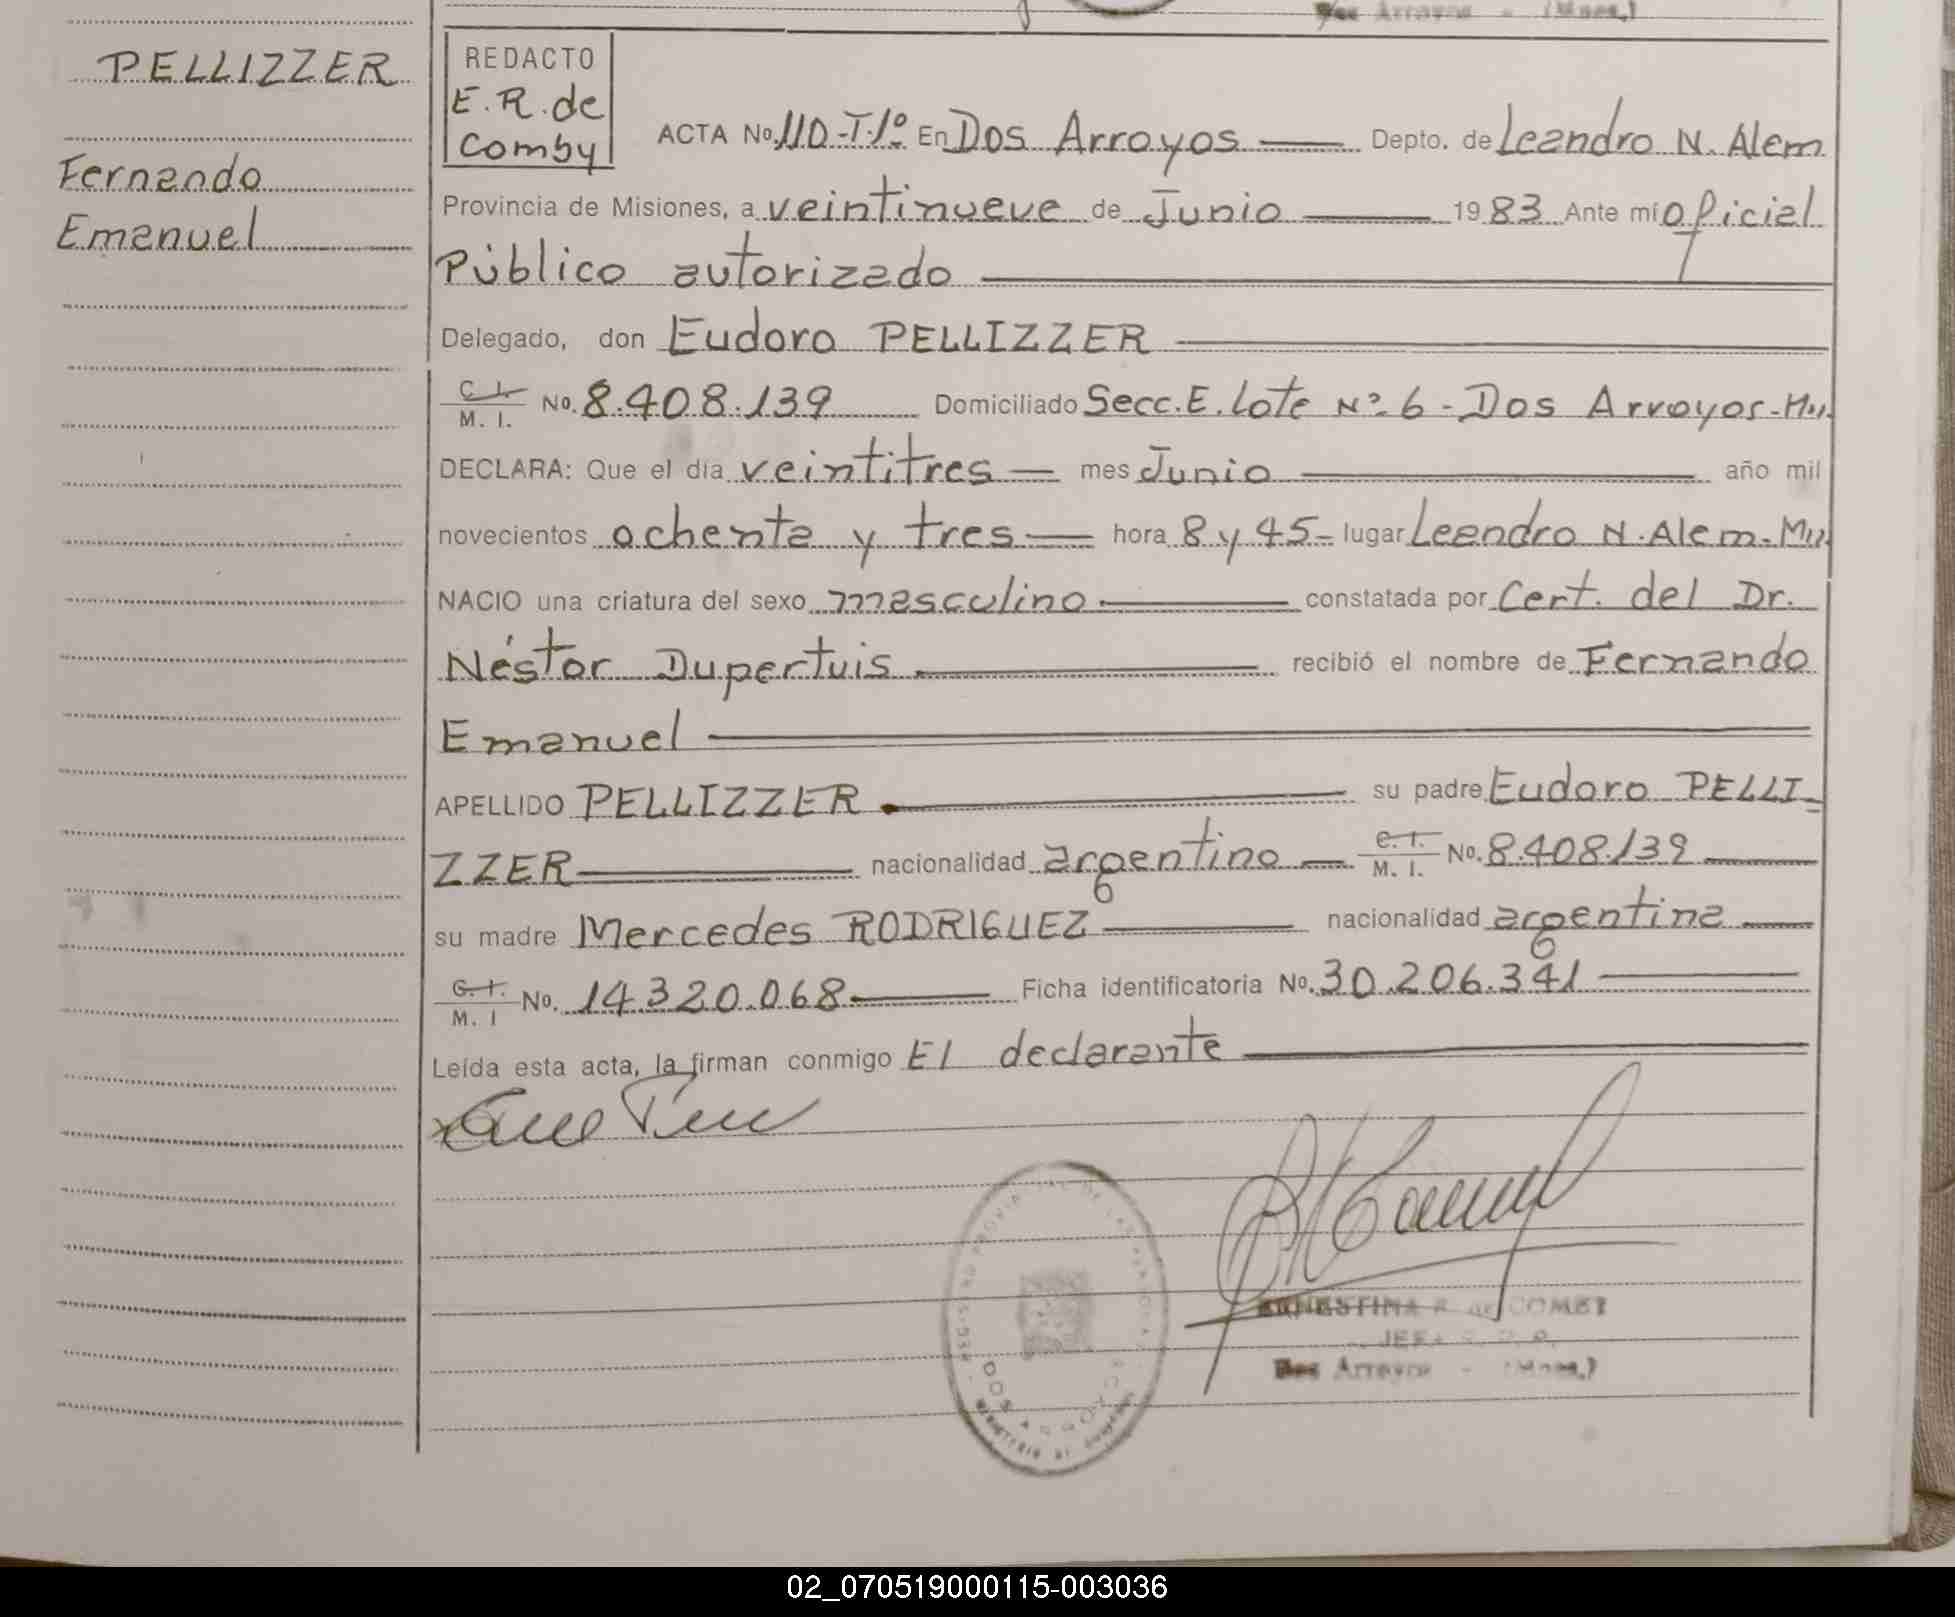 Dos Arroyos - (Mnes.)
PELLIZZER
Fernando
Emanuel
REDACTO
E.R. de
Comby
ACTA No. 110-T-1º En Dos Arroyos Depto. de Leandro N. Alem
Provincia de Misiones, a veintinueve de Junio 1983 Ante mí oficial
Público autorizado
Delegado, don Eudoro PELLIZZER
C. I. M. I. No. 8.408.139 Domiciliado Secc. E. Lote Nº 6 - Dos Arroyos - Mu.
DECLARA: Que el día veintitres mes Junio año mil
novecientos ochenta y tres hora 8 y 45 - lugar Leandro N. Alem - Mu.
NACIO una criatura del sexo masculino constatada por Cert. del Dr.
Néstor Dupertuis recibió el nombre de Fernando
Emanuel
APELLIDO PELLIZZER su padre Eudoro PELLI-
ZZER nacionalidad argentino C. I. M. I. No. 8.408.139
su madre Mercedes RODRIGUEZ nacionalidad argentina
C. I. M. I No. 14.320.068 Ficha identificatoria No. 30.206.341
Leída esta acta, la firman conmigo El declarante
ERNESTINA R. de COMBY
JEFA
Dos Arroyos - (Mnes.)
DOS ARROYOS
02_070519000115-003036